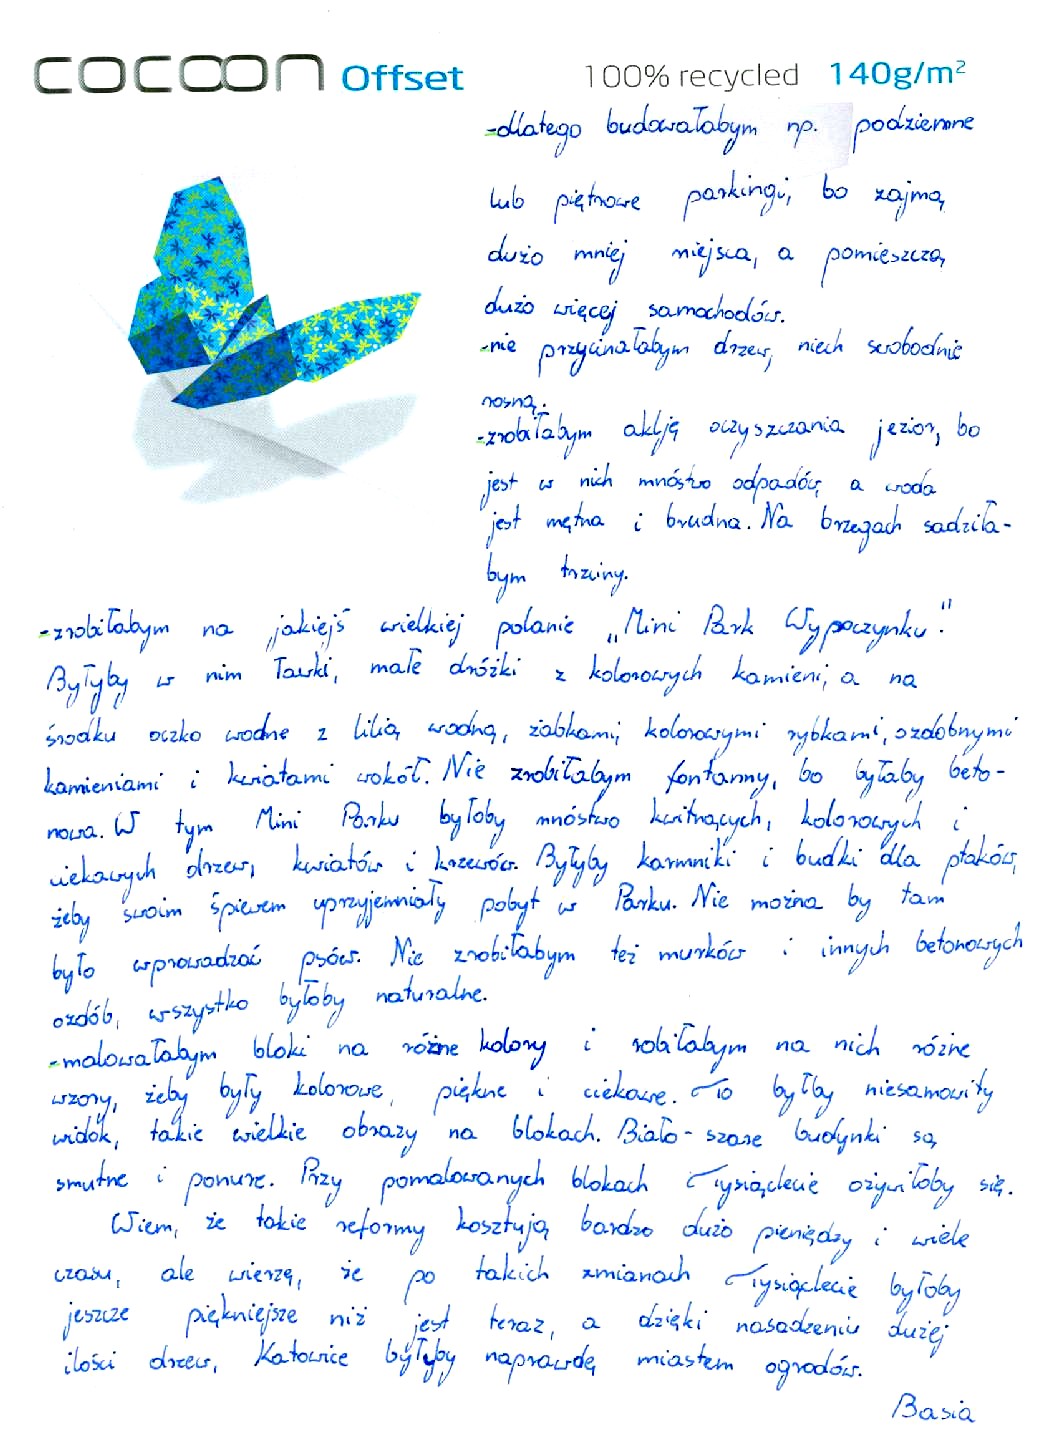 cocoon Offset 100% recycled 140g/m²
-dlatego budowałabym np. podziemne
lub piętrowe parkingi, bo zajmą
dużo mniej miejsca, a pomieszczą
dużo więcej samochodów.
-nie przycinałabym drzew, niech swobodnie
rosną.
-zrobiłabym akcję oczyszczania jezior, bo
jest w nich mnóstwo odpadów, a woda
jest mętna i brudna. Na brzegach sadziła-
bym trzciny.
-zrobiłabym na jakiejś wielkiej polanie „Mini Park Wypoczynku".
Byłyby w nim ławki, małe dróżki z kolorowych kamieni, a na
środku oczko wodne z lilią wodną, żabkami, kolorowymi rybkami, ozdobnymi
kamieniami i kwiatami wokół. Nie zrobiłabym fontanny, bo byłaby beto-
nowa. W tym Mini Parku byłoby mnóstwo kwitnących, kolorowych i
ciekawych drzew, kwiatów i krzewów. Byłyby karmniki i budki dla ptaków,
żeby swoim śpiewem uprzyjemniały pobyt w Parku. Nie można by tam
było wprowadzać psów. Nie zrobiłabym też murków i innych betonowych
ozdób, wszystko byłoby naturalne.
-malowałabym bloki na różne kolory i robiłabym na nich różne
wzory, żeby były kolorowe, piękne i ciekawe. To byłby niesamowity
widok, takie wielkie obrazy na blokach. Biało-szare budynki są
smutne i ponure. Przy pomalowanych blokach Tysiąclecie ożywiłoby się.
Wiem, że takie reformy kosztują bardzo dużo pieniędzy i wiele
czasu, ale wierzę, że po takich zmianach Tysiąclecie byłoby
jeszcze piękniejsze niż jest teraz, a dzięki nasadzeniu dużej
ilości drzew, Katowice byłyby naprawdę miastem ogrodów.
Basia